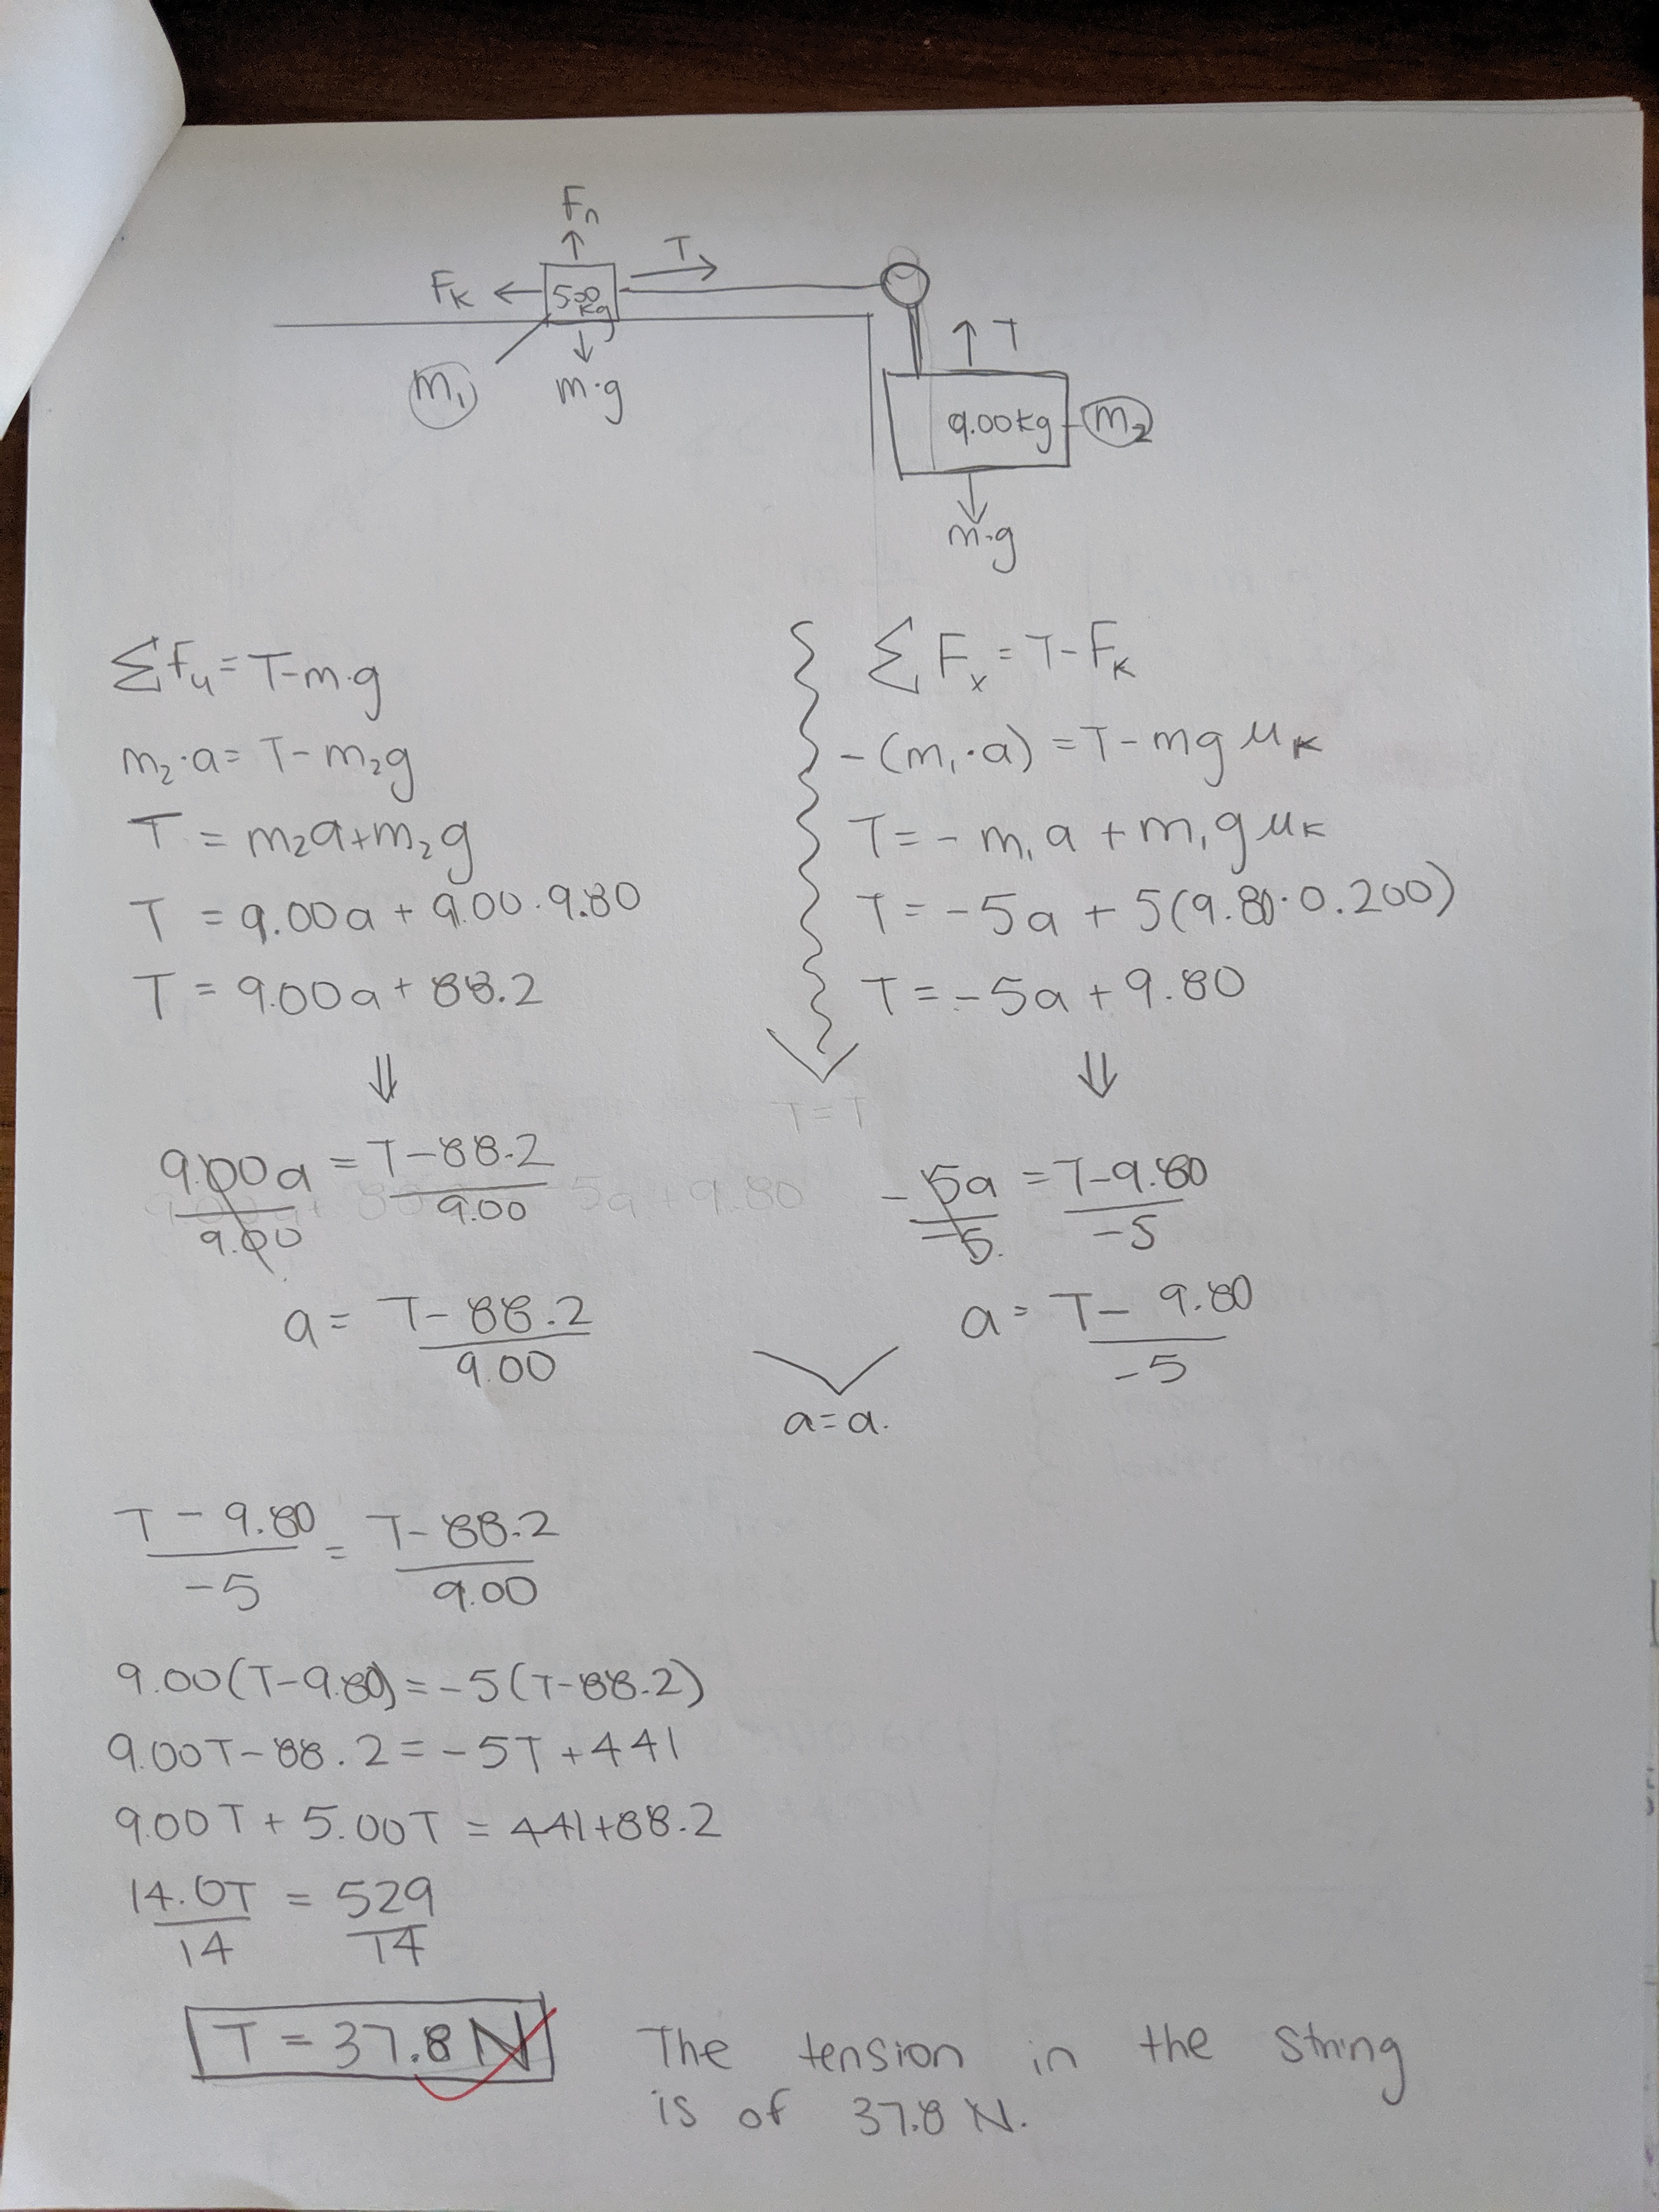 Fn
T
FK
5.00 kg
m1
m·g
T
9.00kg
m2
m·g
ΣFy = T-m·g
m2·a = T- m2g
T = m2a+m2g
T = 9.00a + 9.00·9.80
T = 9.00a + 88.2
⇓
9.00a/9.00 = T-88.2/9.00
a = T-88.2/9.00
ΣFx = T-FK
-(m1·a) = T-mgμK
T = -m1a + m1gμK
T = -5a + 5(9.80·0.200)
T = -5a + 9.80
⇓
-5a/-5 = T-9.80/-5
a = T- 9.80/-5
T=T
a=a.
T - 9.80/-5 = T- 88.2/9.00
9.00(T-9.80) = -5(T-88.2)
9.00T-88.2 = -5T+441
9.00T + 5.00T = 441+88.2
14.0T/14 = 529/14
T = 37.8 N
The tension in the string
is of 37.8 N.